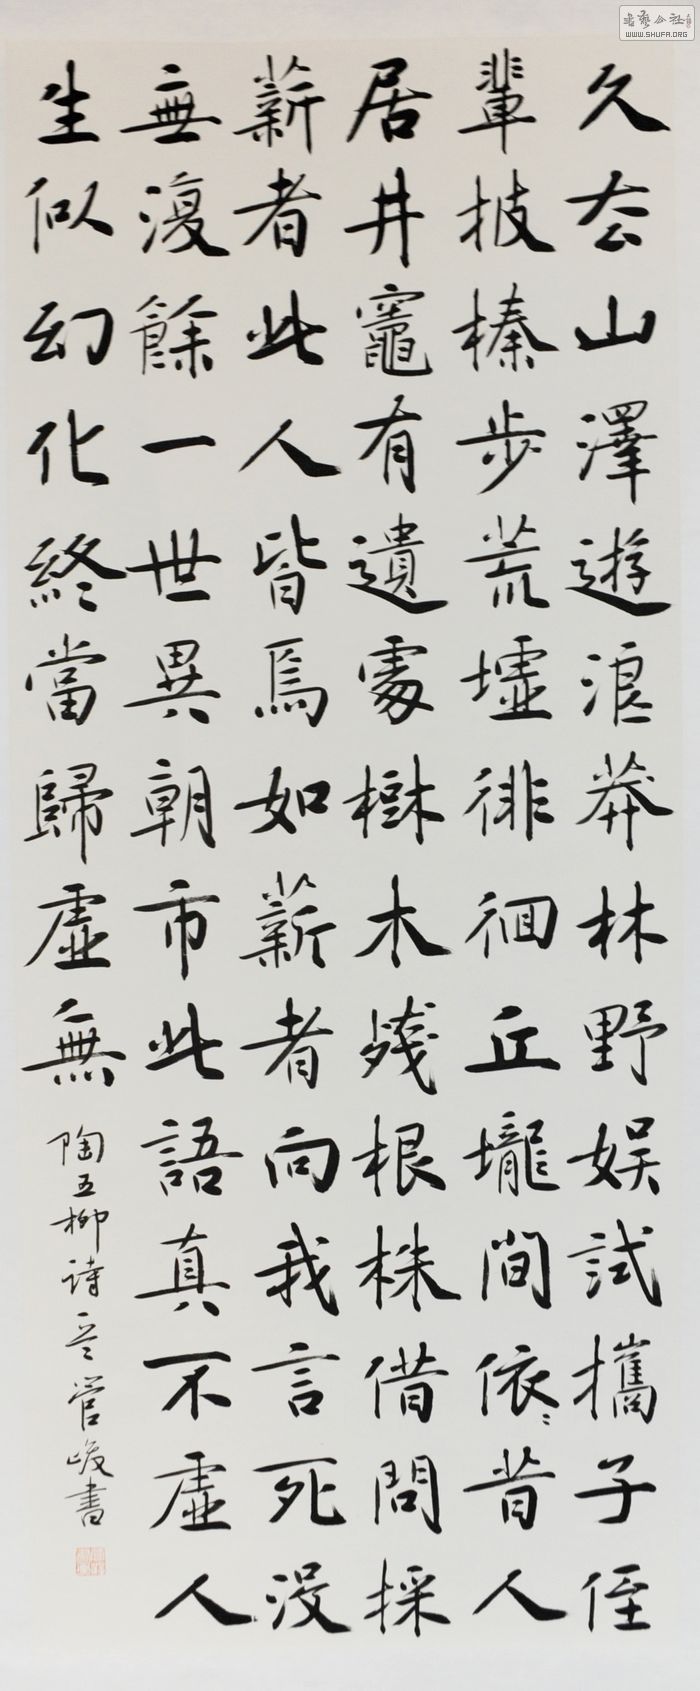 久去山澤遊浪莽林野娛試攜子侄
輩披榛步荒墟徘徊丘壠間依〻昔人
居井竈有遺處樹木殘根株借問採
薪者此人皆焉如薪者向我言死沒
無復餘一世異朝市此語真不虛人
生似幻化終當歸虛無
陶五柳詩一首管峻書
書藝公社
WWW.SHUFA.ORG